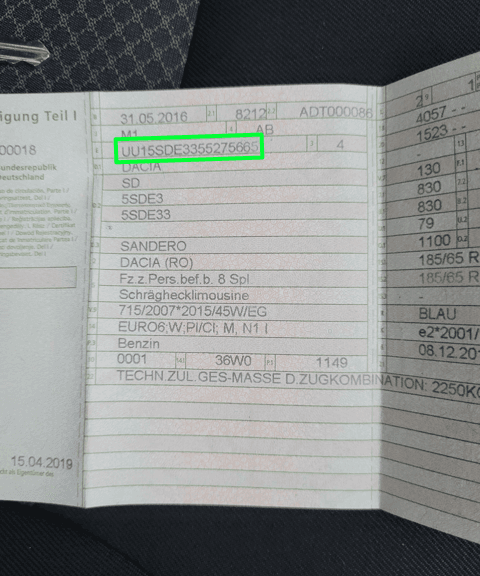 gung Teil I
00018
undesrepublik
Deutschland
15.04.2019
31.05.2016 8212 ADT000086
M1 AB
UU15SDE3355275665 4
DACIA
SD
5SDE3
5SDE33
SANDERO
DACIA (RO)
Fz.z.Pers.bef.b. 8 Spl.
Schräghecklimousine
715/2007*2015/45W/EG
EURO6;W;PI/CI; M, N1 I
Benzin
0001 36W0 1149
TECHN.ZUL.GES-MASSE D.ZUGKOMBINATION: 2250KG
4057 --
1523 --
130
830
830
79
1100
185/65 R
185/65 R
-
BLAU
e2*2001/
08.12.20